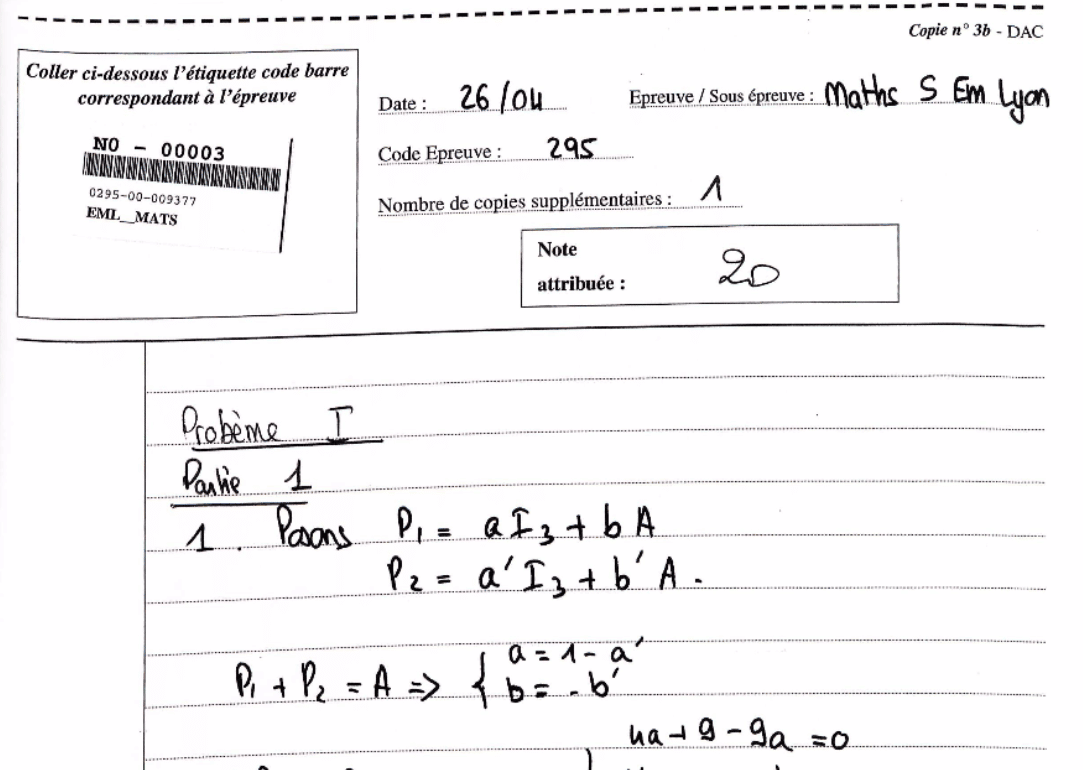 Copie n° 3b - DAC
Coller ci-dessous l'étiquette code barre
correspondant à l'épreuve
NO - 00003
0295-00-009377
EML__MATS
Date : 26/04
Epreuve / Sous épreuve : Maths S Em Lyon
Code Epreuve : 295
Nombre de copies supplémentaires : 1
Note
attribuée : 20
Probème I
Partie 1
1. Posons P₁ = aI₃ + bA
P₂ = a'I₃ + b'A.
P₁ + P₂ = A => { a = 1 - a'
b = - b'
4a + 9 - 9a = 0